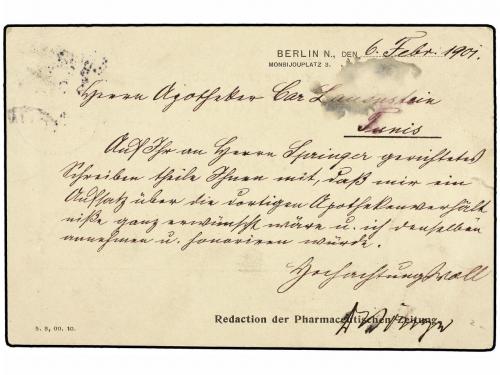 BERLIN N., DEN 6. Febr. 1901.
MONBIJOUPLATZ 3.
Herrn Apotheker Carl Lauenstein
Tunis
Auf Ihr an Herrn Springer gerichtetes
Schreiben theile Ihnen mit, daß mir ein
Aufsatz über die dortigen Apothekenverhält
niße ganz erwünscht wäre u. ich denselben
annehmen u. honoriren würde.
Hochachtungsvoll
Redaction der Pharmaceutischen Zeitung
5. 8. 00. 10.